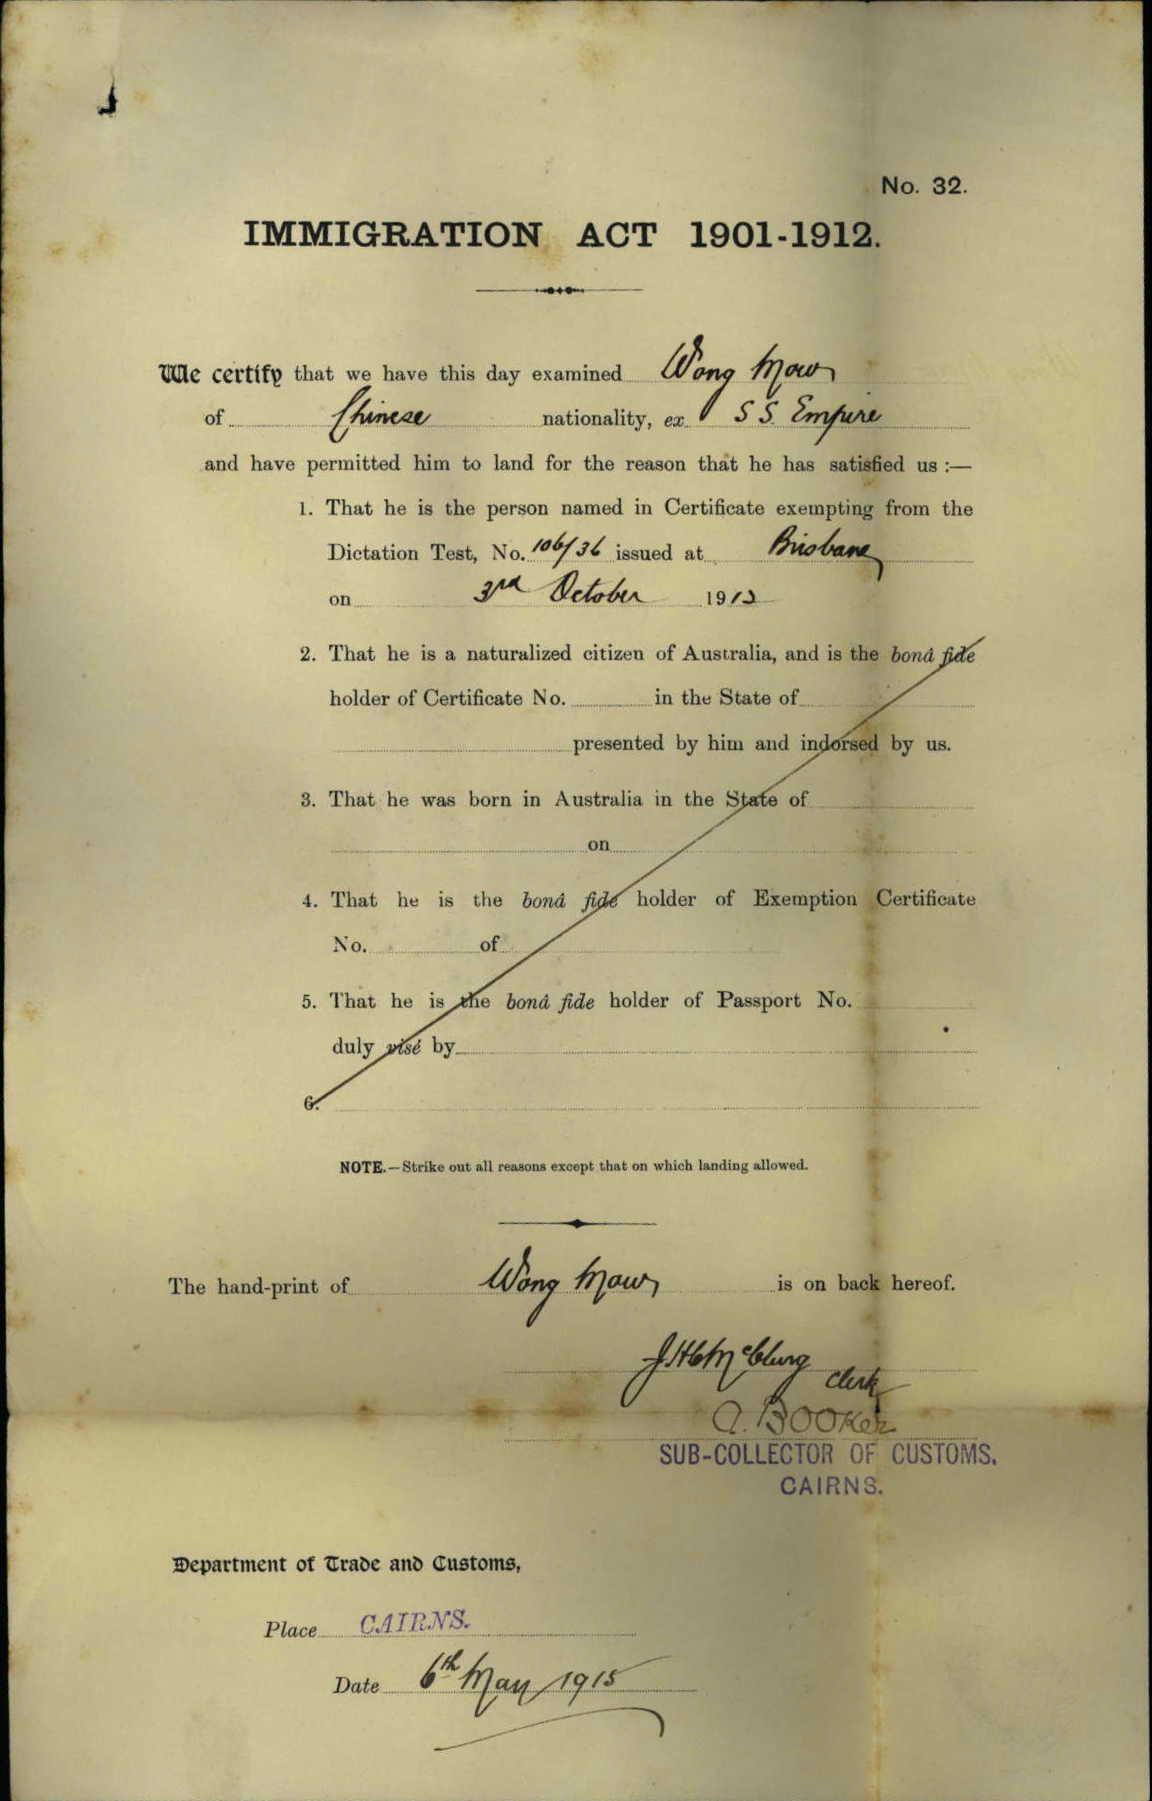 No. 32.
IMMIGRATION ACT 1901-1912.
We certify that we have this day examined Wong Mow
of Chinese nationality, ex SS. Empire
and have permitted him to land for the reason that he has satisfied us :—
1. That he is the person named in Certificate exempting from the
Dictation Test, No. 106/36 issued at Brisbane
on 3rd October 1912
2. That he is a naturalized citizen of Australia, and is the bonâ fide
holder of Certificate No. in the State of
presented by him and indorsed by us.
3. That he was born in Australia in the State of
on
4. That he is the bonâ fide holder of Exemption Certificate
No. of
5. That he is the bonâ fide holder of Passport No.
duly visé by
6.
NOTE.—Strike out all reasons except that on which landing allowed.
The hand-print of Wong Mow is on back hereof.
McClurg
Clerk
A. BOOKER
SUB-COLLECTOR OF CUSTOMS.
CAIRNS.
Department of Trade and Customs,
Place CAIRNS.
Date 6th May 1915